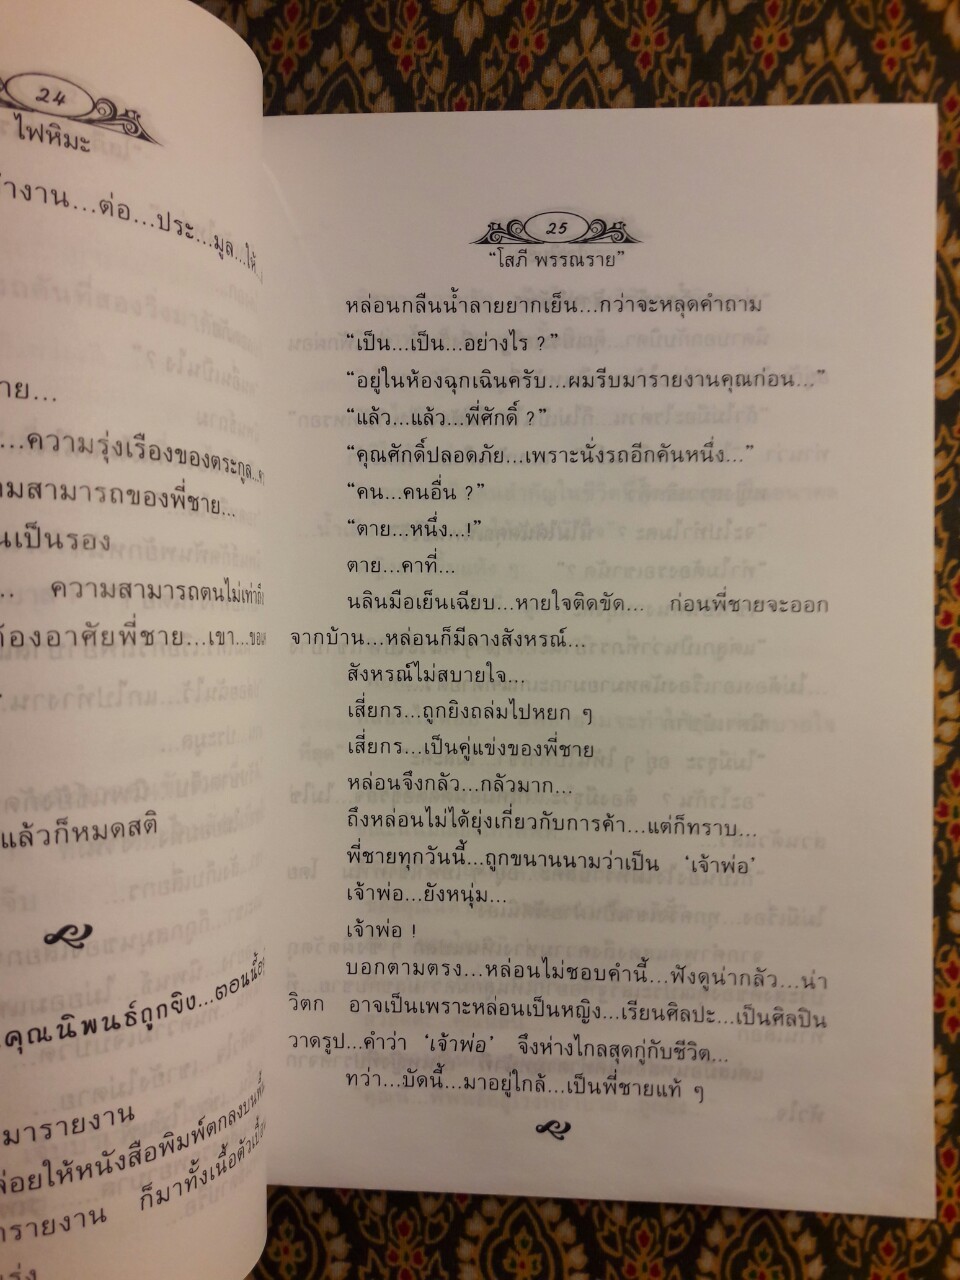 24
ไฟหิมะ
งาน...ต่อ...ประ...มูล...ให้...
...ความรุ่งเรืองของตระกูล...
ความสามารถของพี่ชาย...
เป็นรอง
ความสามารถตนไม่เท่าถึง
ต้องอาศัยพี่ชาย...เขา...ของ
แล้วก็หมดสติ
คุณนิพนธ์ถูกยิง...ตอนนี้อยู่
มารายงาน
ปล่อยให้หนังสือพิมพ์ตกลงบนพื้น
รายงาน ก็มาทั้งเนื้อตัวเปื้อน
25
“โสภี พรรณราย”
หล่อนกลืนน้ำลายยากเย็น...กว่าจะหลุดคำถาม
“เป็น...เป็น...อย่างไร ?”
“อยู่ในห้องฉุกเฉินครับ...ผมรีบมารายงานคุณก่อน...”
“แล้ว...แล้ว...พี่ศักดิ์ ?”
“คุณศักดิ์ปลอดภัย...เพราะนั่งรถอีกคันหนึ่ง...”
“คน...คนอื่น ?”
“ตาย...หนึ่ง...!”
ตาย...คาที่...
นลินมือเย็นเฉียบ...หายใจติดขัด... ก่อนพี่ชายจะออก
จากบ้าน...หล่อนก็มีลางสังหรณ์...
สังหรณ์ไม่สบายใจ...
เสี่ยกร...ถูกยิงถล่มไปหยก ๆ
เสี่ยกร...เป็นคู่แข่งของพี่ชาย
หล่อนจึงกลัว...กลัวมาก...
ถึงหล่อนไม่ได้ยุ่งเกี่ยวกับการค้า...แต่ก็ทราบ...
พี่ชายทุกวันนี้...ถูกขนานนามว่าเป็น ‘เจ้าพ่อ’
เจ้าพ่อ...ยังหนุ่ม...
เจ้าพ่อ !
บอกตามตรง...หล่อนไม่ชอบคำนี้...ฟังดูน่ากลัว...น่า
วิตก อาจเป็นเพราะหล่อนเป็นหญิง...เรียนศิลปะ...เป็นศิลปิน
วาดรูป...คำว่า ‘เจ้าพ่อ’ จึงห่างไกลสุดกู่กับชีวิต...
ทว่า...บัดนี้...มาอยู่ใกล้...เป็นพี่ชายแท้ ๆ